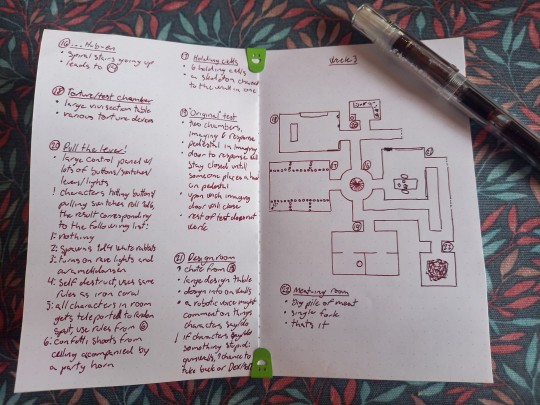 spiral stairs going up
leads to
18 Torture/test chamber
large vivisection table
various torture devices
20 Pull the lever!
large control panel w/
lots of buttons/switches/
levers/lights
! characters toying buttons/
pulling switches roll 1d6,
the result corresponding
to the following list:
1: Nothing
2: Spawns 1d4 white rabbits
3: turns on rave lights and
caramelldansen
4: Self destruct, uses same
rules as iron coral
5: all characters in room
gets teleported to random
spot, use rules from 6
6: Confetti shoots from
ceiling accompanied by
a party horn
17 Holding cells
6 holding cells
a skeleton chained
to the wall in one
19 Original test
two chambers,
imaging & response
pedestal in imaging
door to response will
stay closed until
someone places a hand
on pedestal
upon which imaging
door will close
rest of test does not
work
21 Design room
chute from
large design table
design info on walls
a robotic voice might
comment on things
characters say/do
! if characters say/do
something stupid:
chance to
take back or
16
18
17
19
22
22 Meat room
Big pile of meat
single fork
thats it